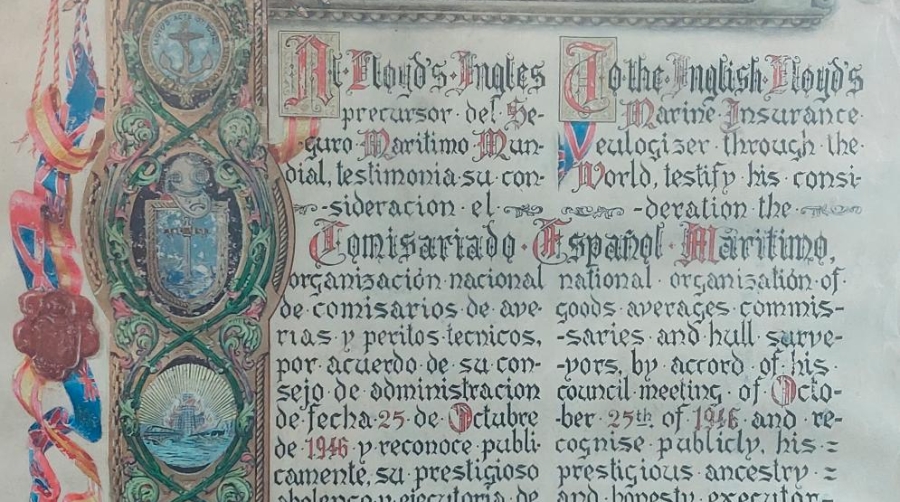 Al·Lloyd's·Ingles
precursor·del·Se-
guro Maritimo Mun-
dial, testimonia·su·con-
-sideracion el
To·the·English·Lloyd's
Marine Insurance
eulogizer through the
World, testify his consi-
-deration the
Comisariado·Español·Maritimo,
organización nacional
de comisarios de ave-
rias y peritos tecnicos,
por acuerdo de su con-
sejo de administracion
de fecha 25 de Octubre
de 1946 y reconoce publi-
camente, su prestigioso
abolengo y ejecutoria de
national organization of
goods averages commis-
-saries and hull surve-
-yors, by accord of his
council meeting of Octo-
ber 25th of 1946 and re-
cognise publicly, his =
prestigious ancestry =
and honesty executor-